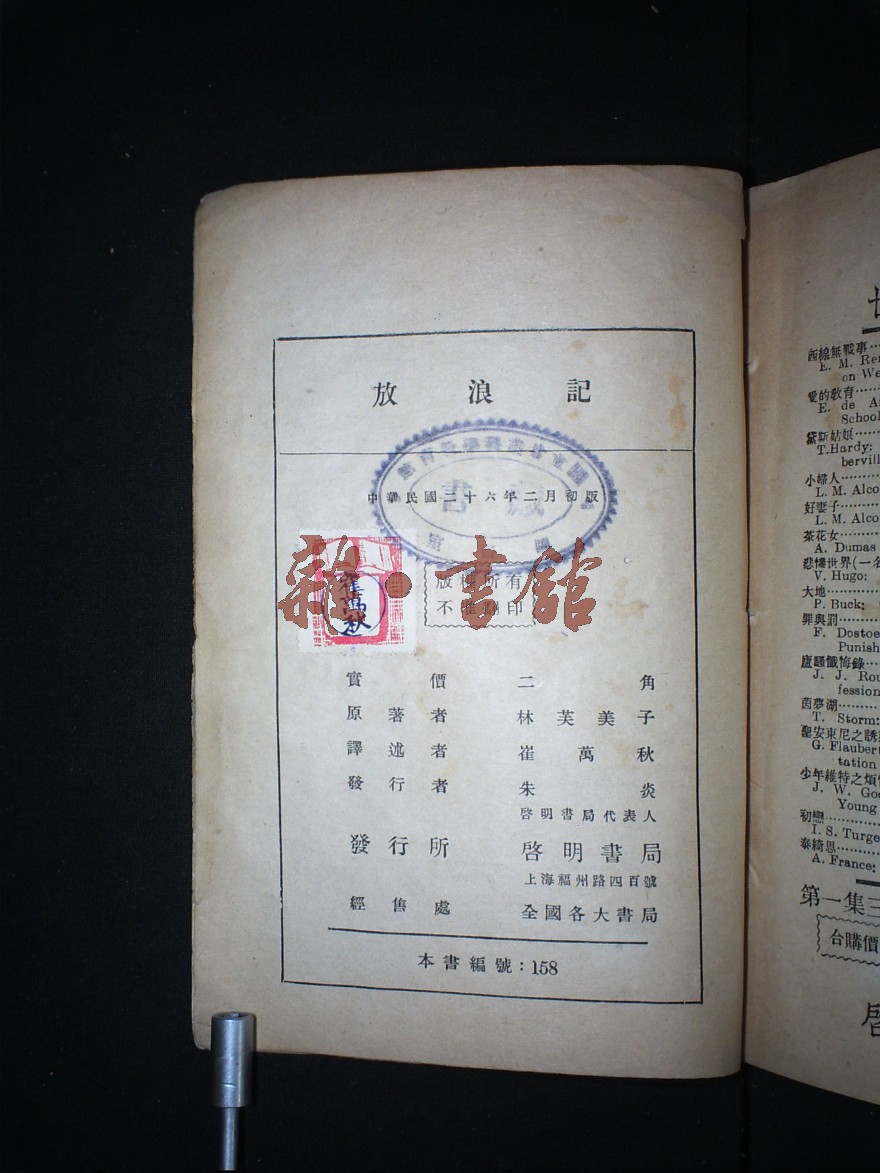 放浪記
中華民國二十六年二月初版
書藏
崔萬秋
版權所有
不准翻印
雜·書館
實價 二角
原著者 林芙美子
譯述者 崔萬秋
發行者 朱炎
啓明書局代表人
發行所 啓明書局
上海福州路四百號
經售處 全國各大書局
本書編號：158
西線無戰事
E. M. Re
on We
愛的教育
E. de A
School
黛斯姑娘
T. Hardy:
bervill
小婦人
L. M. Alco
好妻子
L. M. Alco
茶花女
A. Dumas
悲慘世界(一名
V. Hugo:
大地
P. Buck:
罪與罰
F. Dostoe
Punish
盧騷懺悔錄
J. J. Rou
fession
茵夢湖
T. Storm:
聖安東尼之誘
G. Flauber
tation
少年維特之煩
J. W. Goe
Young
初戀
I. S. Turge
泰綺思
A. France:
第一集三
台購價